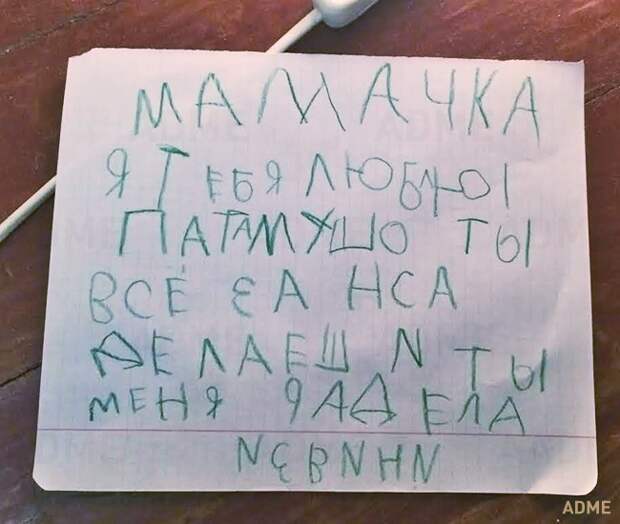 МАМАЧКА
Я ТЕБЯ ЛЮБЛЮ
ПАТАМУШО ТЫ
ВСЁ ЗА НСА
ДЕЛАЕШ И ТЫ
МЕНЯ РАДЕЛА
ИЗВИНИ
ADME